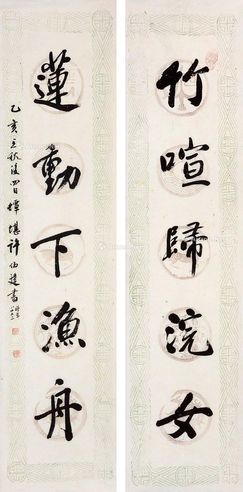 竹喧歸浣女
蓮動下漁舟
乙亥立秋後四日嘩堪許伯建書